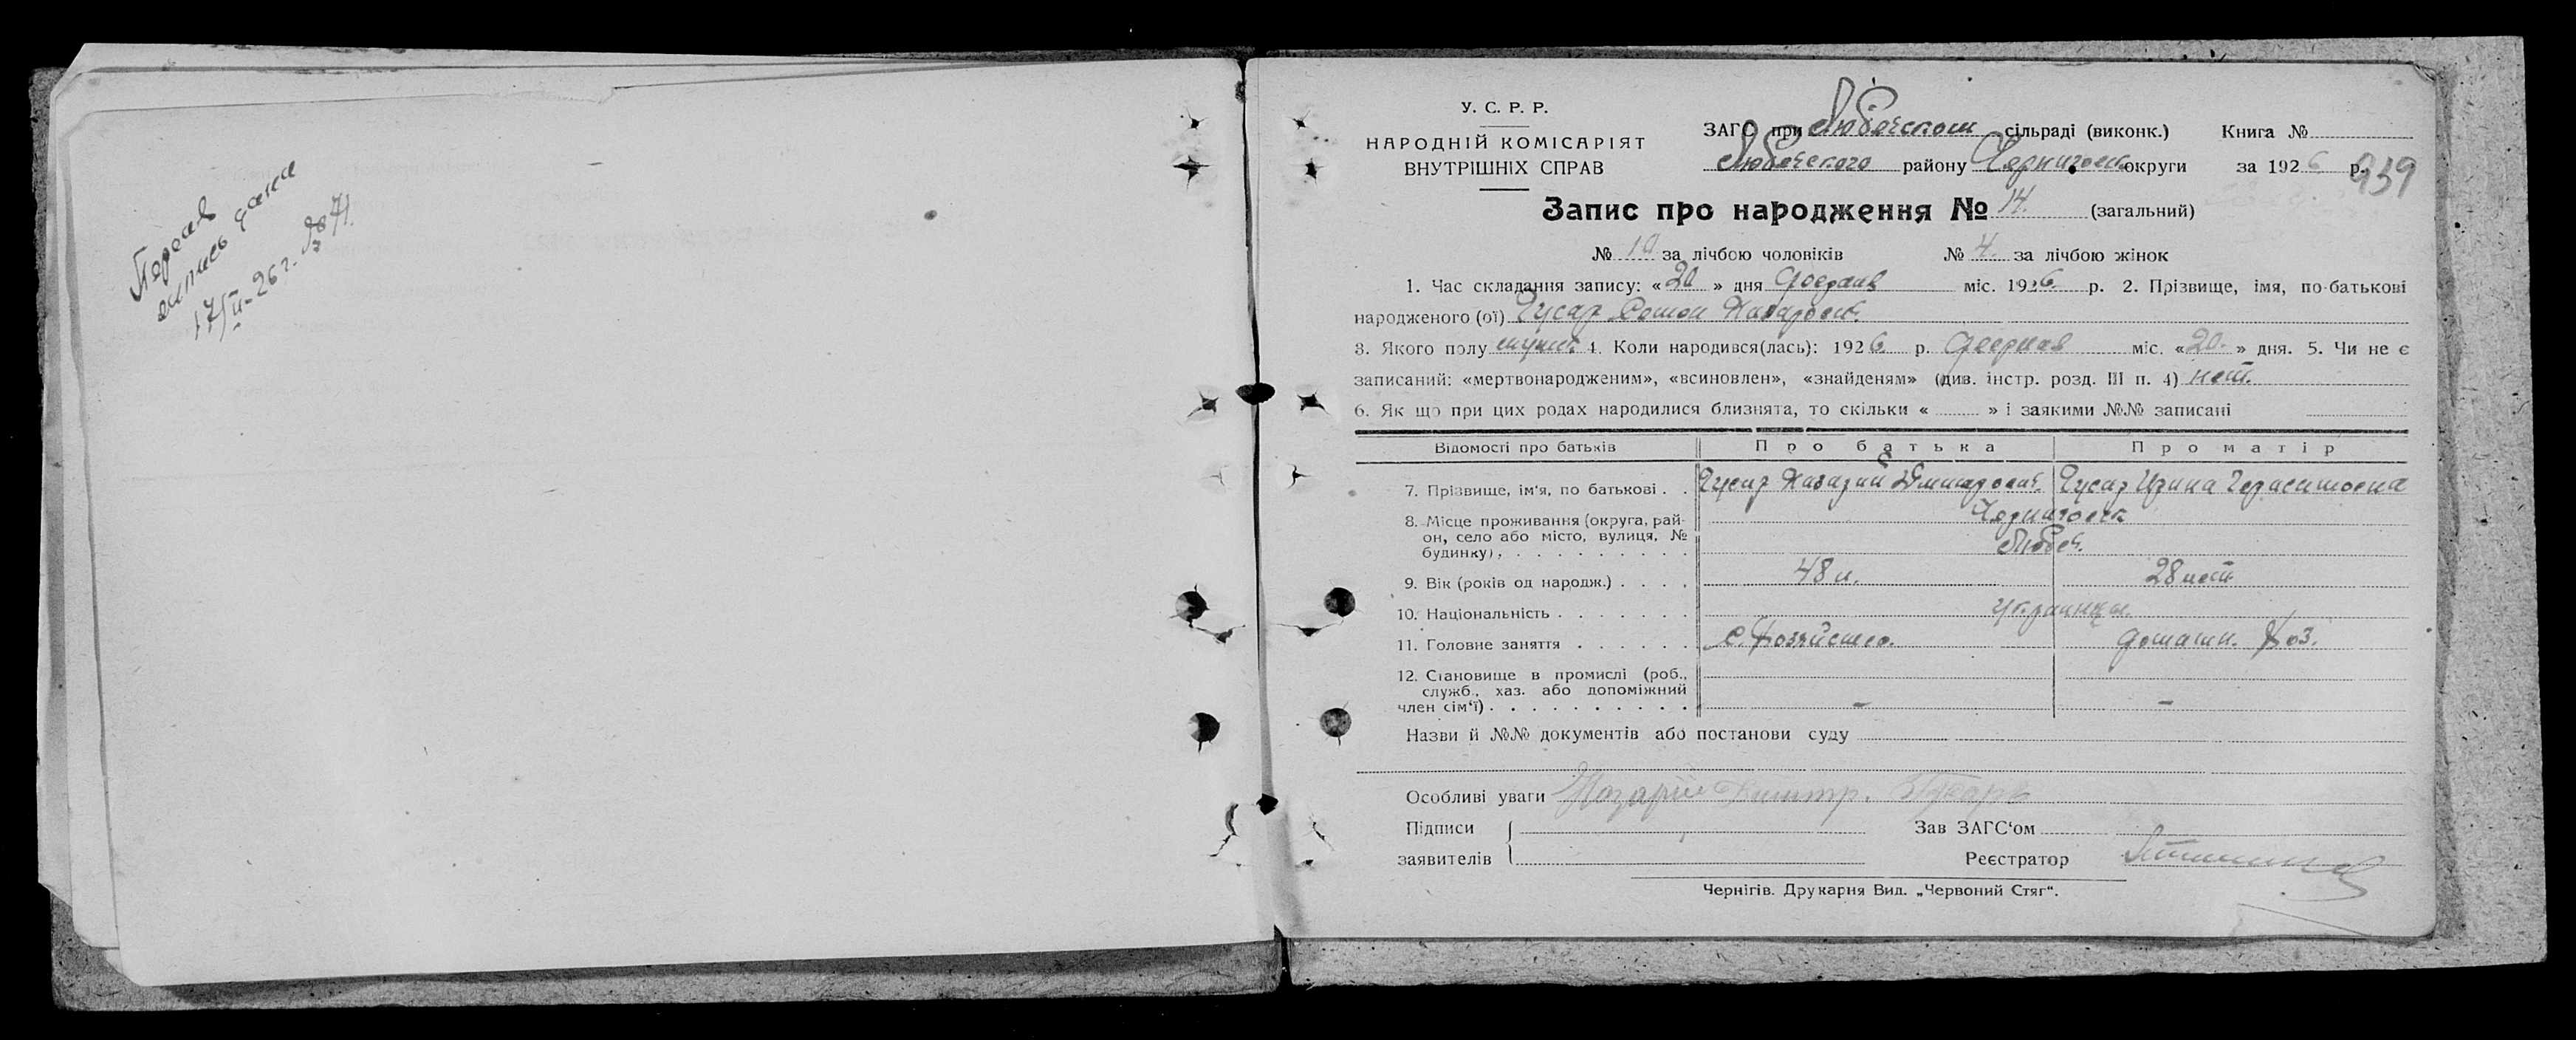 выпись дана
17/II-26 г.
У. С. Р. Р.
НАРОДНІЙ КОМІСАРІЯТ
ВНУТРІШНІХ СПРАВ
ЗАГС при Любечском сільраді (виконк.) Книга №
Любечского району Черниговск округи за 1926 р. 939
Запис про народження № 14. (загальний)
№ 10 за лічбою чоловіків № 4. за лічбою жінок
1. Час складання запису: «20» дня Февраля міс. 1926 р. 2. Прізвище, імя, по-батькові
народженого (ої) Гусар Назаров.
3. Якого полу мужск 4. Коли народився(лась): 1926 р. Февраля міс. «20.» дня. 5. Чи не є
записаний: «мертвонародженим», «всиновлен», «знайденям» (див. інстр. розд. III п. 4) нет.
6. Як що при цих родах народилися близнята, то скільки « » і заякими №№ записані
Відомості про батьків Про батька Про матір
7. Прізвище, ім'я, по батькові . . Гусар Назарий Дмитрович. Гусар Ирина Герасимовна
8. Місце проживання (округа, рай- Черниговск
он, село або місто, вулиця, №
будинку), . . . . . . . . . . Любеч.
9. Вік (років од народж.) . . . . 48 л. 28 лет
10. Національність . . . . . . . украинцы.
11. Головне заняття . . . . . . с. Хозяйство. домашн. Хоз.
12. Становище в промислі (роб.,
служб., хаз. або допоміжний
член сім'ї) . . . . . . . . . . – –
Назви й №№ документів або постанови суду
Особливі уваги Назарій Дмитр. Гусарь
Підписи Зав ЗАГС'ом
заявителів Реєстратор
Чернігів. Друкарня Вид. „Червоний Стяг“.